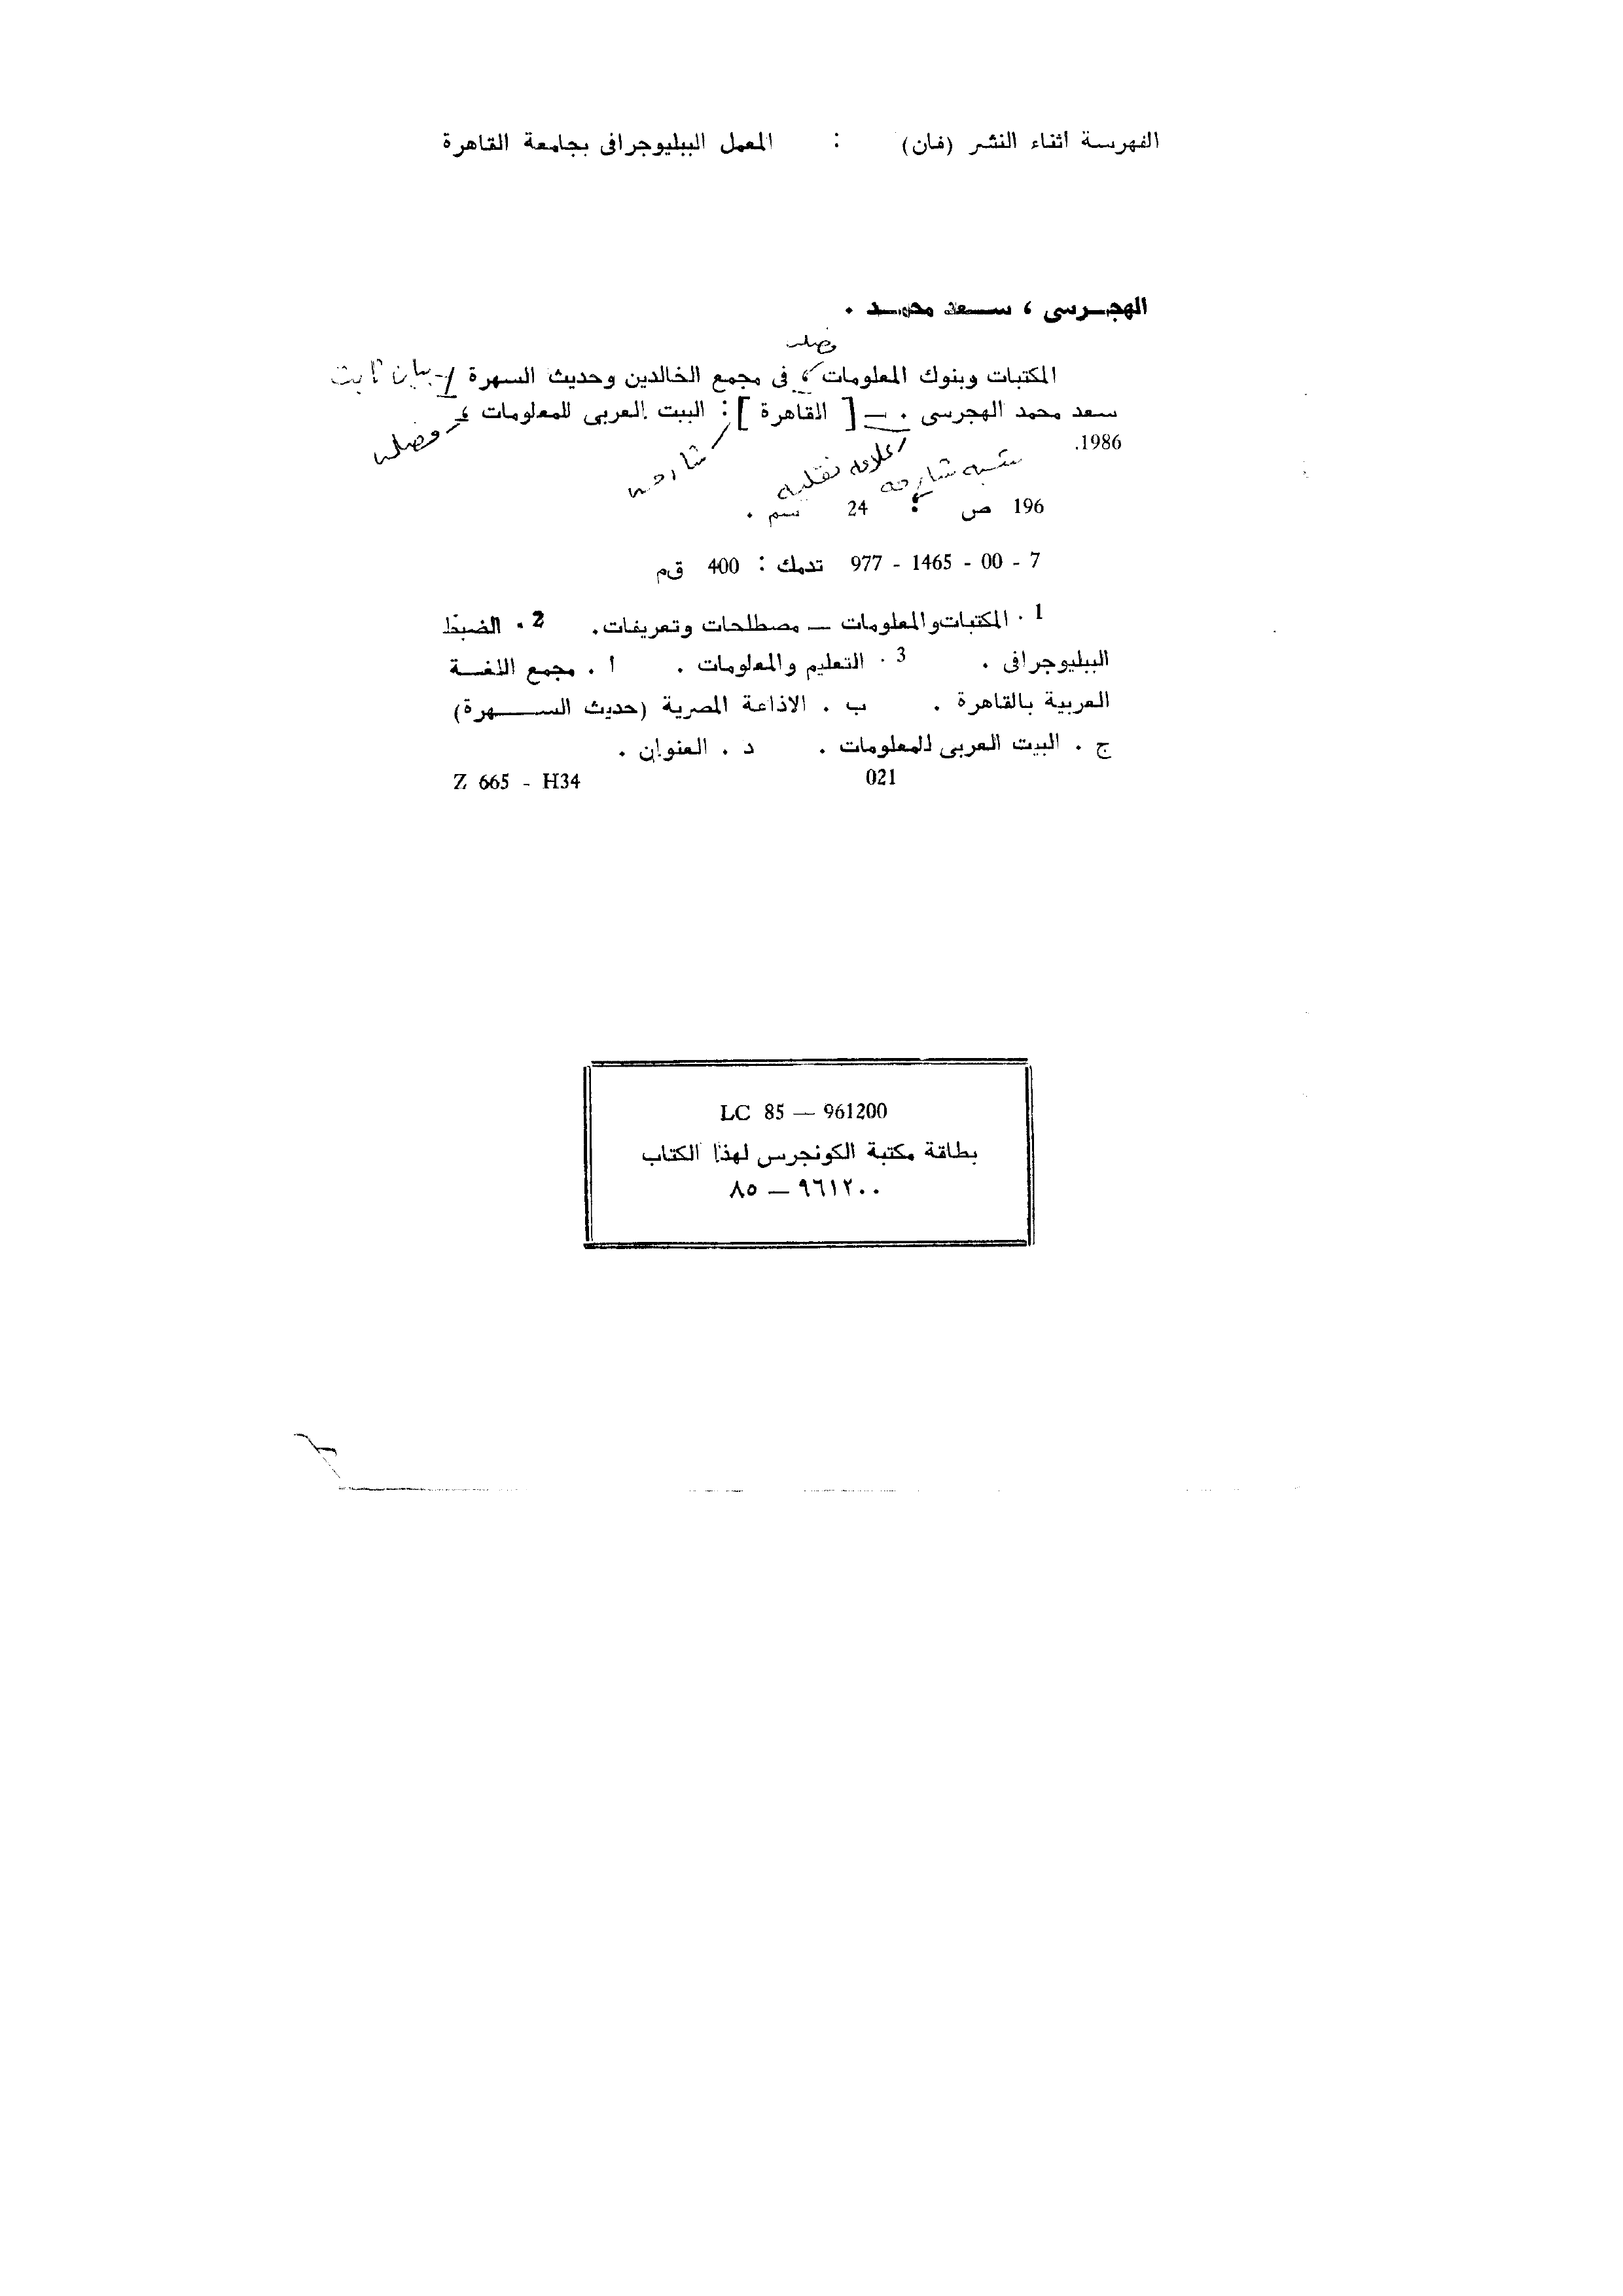 الفهرسة اثناء النشر (فان) : المعمل الببليوجرافى بجامعة القاهرة
الهجـرسى ، سـعد محمـد .
فصله
المكتبات وبنوك المعلومات ، فى مجمع الخالدين وحديث السهرة / بيان ثابت
سعد محمد الهجرسى . ــ [ القاهرة ] : البيت العربى للمعلومات ، فصله
1986.
شارحه علامه نقليه شبه شارحه
196 ص ؛ 24 سم .
7 - 00 - 1465 - 977 تدمك : 400 ق٠م
1 . المكتبات والمعلومات ــ مصطلحات وتعريفات . 2 . الضبط
الببليوجرافى . 3 . التعليم والمعلومات . ا . مجمع اللغـة
العربية بالقاهرة . ب . الاذاعة المصرية (حديث الســهرة)
ج . البيت العربى للمعلومات . د . العنوان .
021 Z 665 - H34
LC 85 — 961200
بطاقة مكتبة الكونجرس لهذا الكتاب
٩٦١٢٠٠ — ٨٥